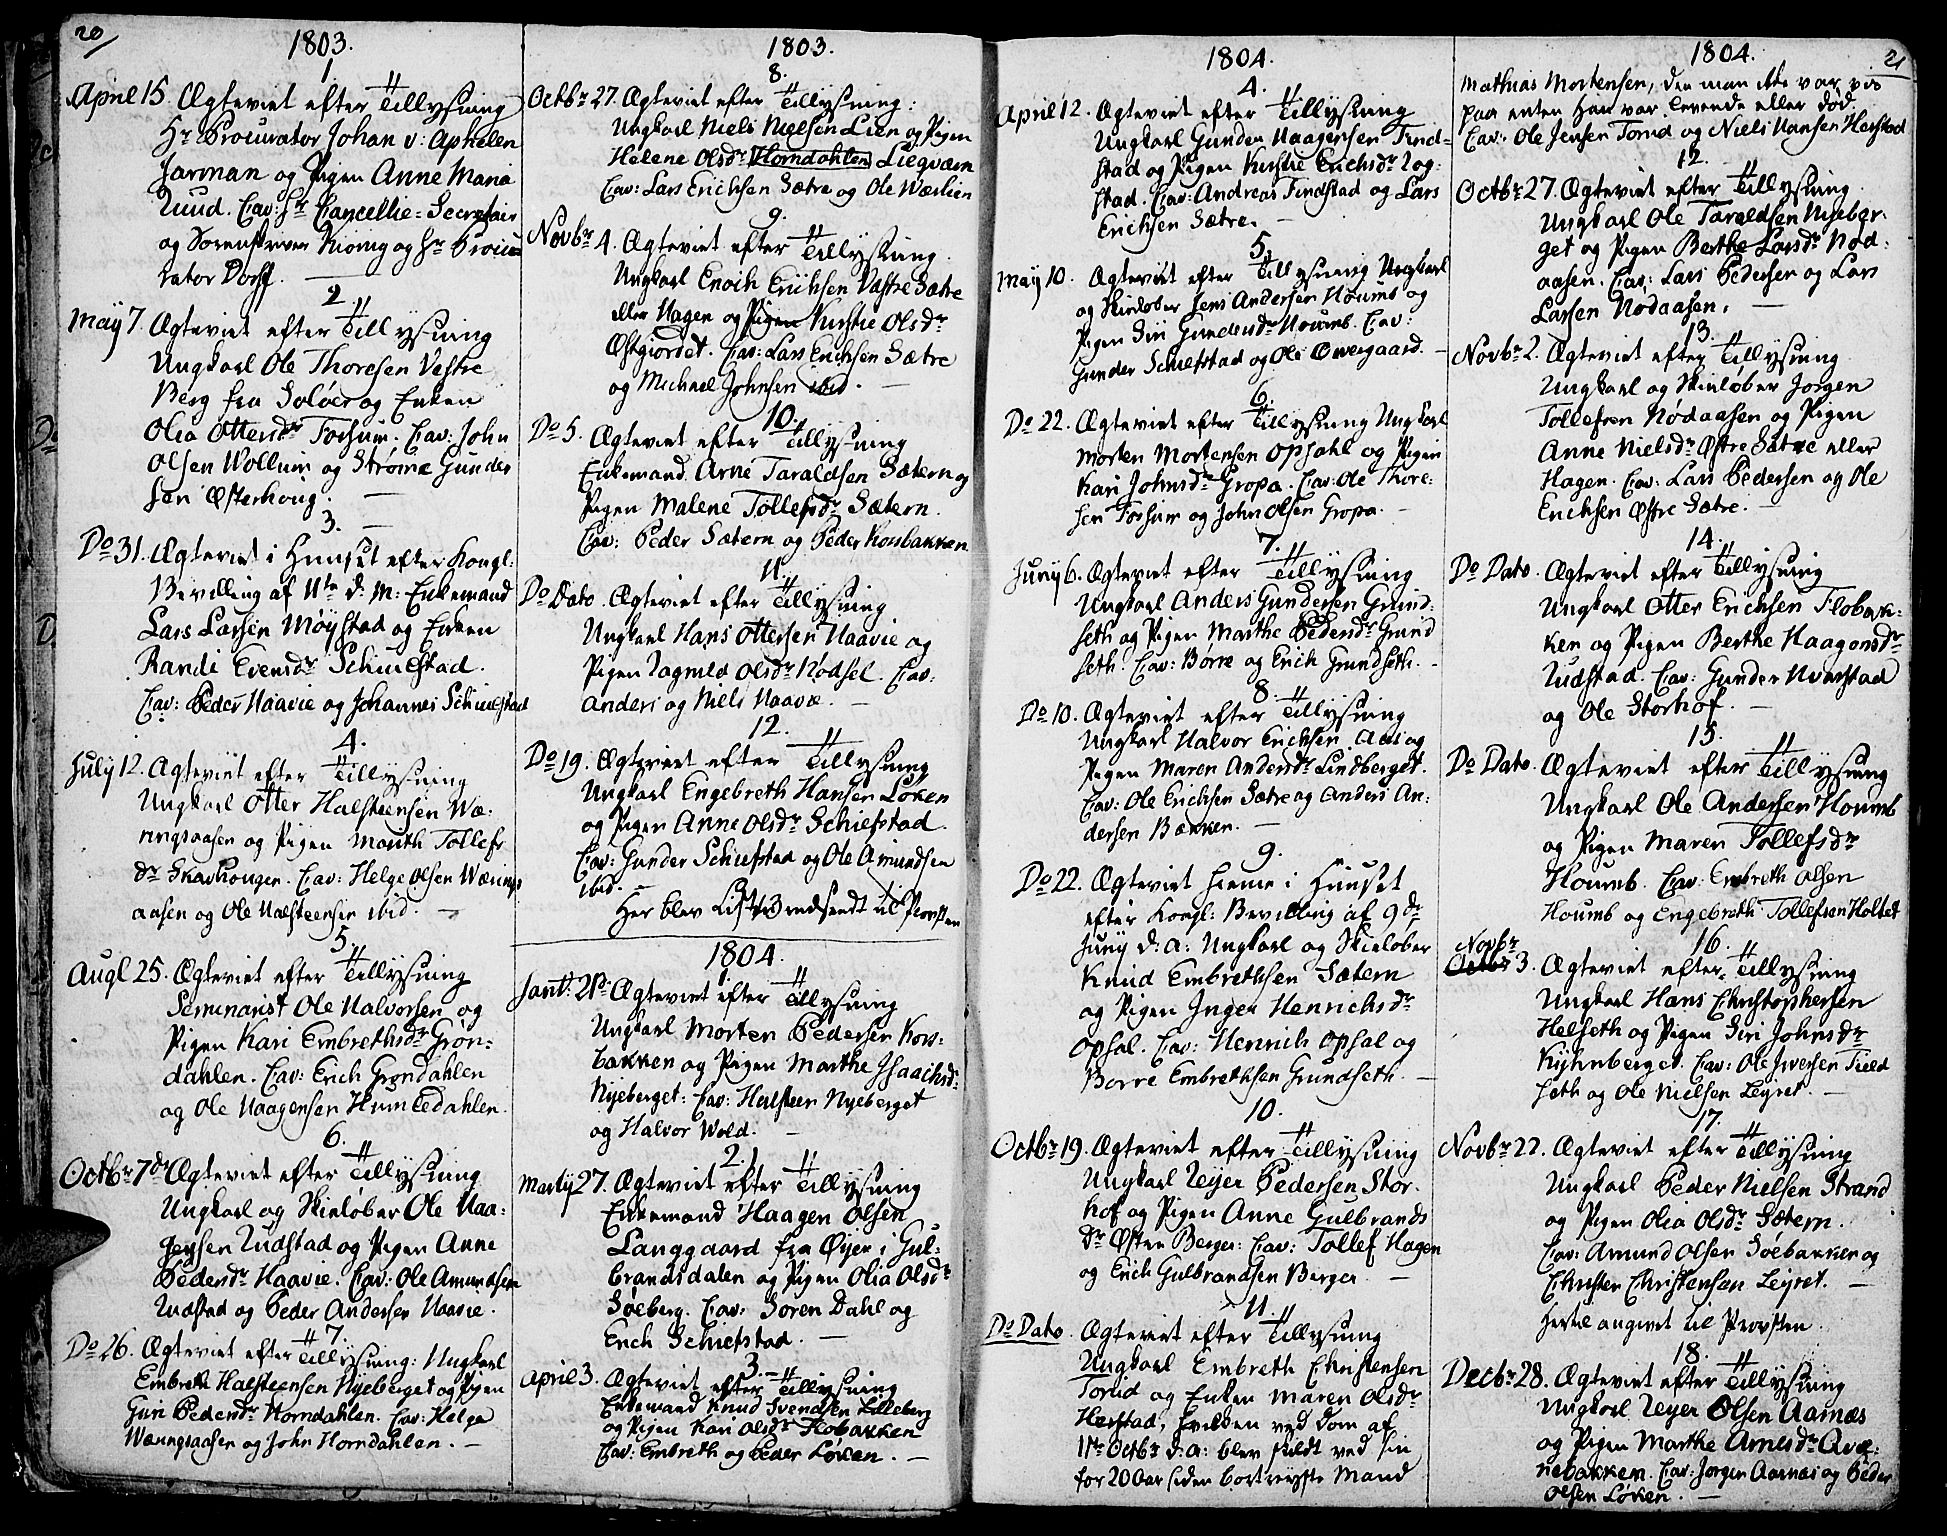 20/
1803.
1.
April 15. Ægteviet efter Tillysning
Hr Procurator Johan v: Aphelen
Jarman og Pigen Anne Maria
Ruud. Cav: Hr Cancellie-Secretair
og Sorenskriver Kiönig og Hr Procu
rator Dorff.
2.
May 7. Ægteviet efter Tillysning
Ungkarl Ole Thoresen Vestre
Berg fra Soløer og Enken
Olia Ottersdr Forsum. Cav: John
Olsen Wollum og Strøme Gunder
sen Østerhoug.
3.
Do 31. Ægteviet i Huuset efter Kongl:
Bevilling af 11te d: M: Enkemand
Lars Larsen Møystad og Enken
Randi Evensdr Schiulstad.
Cav: Peder Haavie og Johannes Schiulstad
4.
July 12. Ægteviet efter Tillysning
Ungkarl Otter Halsteensen Wæ-
ringsaasen og Pigen Marith Tollefs
dr Skavhougen. Cav: Helge Olsen Wærings
aasen og Ole Halsteensen ibid.
5.
Augl 25. Ægteviet efter Tillysning
Seminarist Ole Halvorsen og
Pigen Kari Embrethsdr Grøn-
dahlen. Cav: Erich Grøndahlen
og Ole Haagensen Humledahlen.
6.
Octbr 7de Ægteviet efter Tillysning
Ungkarl og Skieløber Ole Haa-
gensen Rudstad og Pigen Anne
Pedersdr Haavie. Cav: Ole Amundsen
Rudstad og Peder Andersen Haavie.
7.
Do 26. Ægteviet efter Tillysning: Ungkarl
Embreth Halsteensen Nyeberget og Pigen
Guri Pedersdr Horndahlen. Cav: Helge
Wæringsaasen og John Horndahlen.
1803.
8.
Octbr 27. Ægteviet efter Tillysning:
Ungkarl Niels Nielsen Lien og Pigen
Helene Olsdr Horndahlen Liegværn
Cav: Lars Erichsen Sætre og Ole Wærlien
9.
Novbr 4. Ægteviet efter Tillysning.
Ungkarl Enoch Erichsen Vestre Sætre
eller Hagen og Pigen Kirstie Olsdr
Østgiordet. Cav: Lars Erichsen Sætre
og Michael Johnsen ibid.
10.
Do 5. Ægteviet efter Tillysning
Enkemand Arne Taraldsen Sætern og
Pigen Malene Tollefsdr Sætern.
Cav: Peder Sætern og Peder Korsbakken
11.
Do Dato. Ægteviet efter Tillysning
Ungkarl Hans Ottersen Haavie og
Pigen Ragnild Olsdr Nødsel. Cav:
Anders og Niels Haavie.
12.
Do 19. Ægteviet efter Tillysning
Ungkarl Engebreth Hansen Løken
og Pigen Anne Olsdr Schiefstad.
Cav: Gunder Schiefstad og Ole Amundsen
ibid.
Her blev Lister indsendt til Provsten
1804.
1.
Janr: 21de Ægteviet efter Tillysning
Ungkarl Morten Pedersen Kors-
bakken og Pigen Marthe Isaachsd:
Nyeberget: Cav: Halsteen Nyeberget
og Halvor Wold.
2.
Marty 27. Ægteviet efter Tillysning
Enkemand Haagen Olsen
Langgaard fra Øyer i Gul-
brandsdalen og Pigen Olia Olsdr
Søeberg. Cav: Soren Dahl og
Erich Schiefstad.
3.
April 3. Ægteviet efter Tillysning
Enkemand Knud Svendsen Lilleberg
og Pigen Kari Olsdr Flobakken
Cav: Embreth og Peder Løken.
1804.
4.
April 12. Ægteviet efter Tillysning
Ungkarl Gunder Haagensen Find-
stad og Pigen Kirstie Erichsdr Log-
stad. Cav: Andreas Findstad og Lars
Erichsen Sætre.
5.
May 10. Ægteviet efter Tillysning Ungkarl
og Skieløber Jens Andersen Houmb og
Pigen Siri Gundersdr Houmb. Cav:
Gunder Schiefstad og Ole Owergaard.
6.
Do 22. Ægteviet efter Tillysning Ungkarl
Morten Mortensen Opsahl og Pigen
Kari Johnsdr Gropa. Cav: Ole Thore-
sen Forsum og John Olsen Gropa.
7.
Juny 6. Ægteviet efter Tillysning
Ungkarl Anders Gundersen Grund-
seth og Pigen Marthe Pedersdr Grund
seth. Cav: Børre og Erich Grundseth.
8.
Do 10. Ægteviet efter Tillysning
Ungkarl Halvor Erichsen Aas og
Pigen Maren Andersdr Lindberget.
Cav: Ole Erichsen Sætre og Anders An-
dersen Bækken.
9.
Do 22. Ægteviet hieme i Huuset
efter Kongl: Bevilling af 9de
Juny d: a: Ungkarl og Skieløber
Knud Embrethsen Sætern
og Pigen Inger Henrichsdr
Opsal. Cav: Henrich Opsal og
Børre Embrethsen Grundseth.
10.
Octbr 19. Ægteviet efter Tillysning
Ungkarl Reyer Pedersen Stor-
hof og Pigen Anne Gulbrands
dr Østen Berger: Cav: Tollef Hagen
og Erich Gulbrandsen Berger.
11.
Do Dato. Ægteviet efter Tillysning
Ungkarl Embreth Christensen
Torud og Enken Maren Olsdr
Herstad, hvilken ved Dom af
11te Octbr d: a: blev skildt ved sin
for 20 Aar siden bortreyste Mand
1804. 21
Mathias Mortensen, den man ikke var vis
paa enten han var levende eller død.
Cav: Ole Jensen Torud og Niels Hansen Herstad
12.
Octbr 27. Ægteviet efter Tillysning
Ungkarl Ole Taraldsen Nyeber-
get og Pigen Berthe Larsdr Nød-
aasen. Cav: Lars Pedersen og Lars
Larsen Nødaasen.
13.
Novbr 2. Ægteviet efter Tillysning
Ungkarl og Skieløber Jorgen
Tollefsen Nødaasen og Pigen
Anne Nielsdr Østre Sætre eller
Hagen. Cav: Lars Pedersen og Ole
Erichsen Østre Sætre.
14.
Do Dato. Ægteviet efter Tillysning
Ungkarl Otter Erichsen Flobak-
ken og Pigen Berthe Haagensdr
Rudstad. Cav: Gunder Kvarstad
og Ole Storhof.
15.
Do Dato. Ægteviet efter Tillysning
Ungkarl Ole Andersen Houmb
og Pigen Maren Tollefsdr
Houmb. Cav: Embreth Olsen
Houmb og Engebreth Tollefsen Holtet
16.
Novbr
Octbr 3. Ægteviet efter Tillysning
Ungkarl Hans Christophersen
Helseth og Pigen Siri Johnsdr
Kyhnberget. Cav: Ole Iversen Field
seth og Ole Nielsen Leyret.
17.
Novbr 22. Ægteviet efter Tillysning
Ungkarl Peder Nielsen Strand
og Pigen Olia Olsdr Sætern.
Cav: Amund Olsen Søebakken og
Christen Christensen Leyret.
Hertil angivet til Provsten.
18.
Decbr 28. Ægteviet efter Tillysning
Ungkarl Reyer Olsen Aarnæs
og Pigen Marthe Arnesdr Qvæ-
nebakken. Cav: Jorgen Aarnæs og Peder
Olsen Løken.